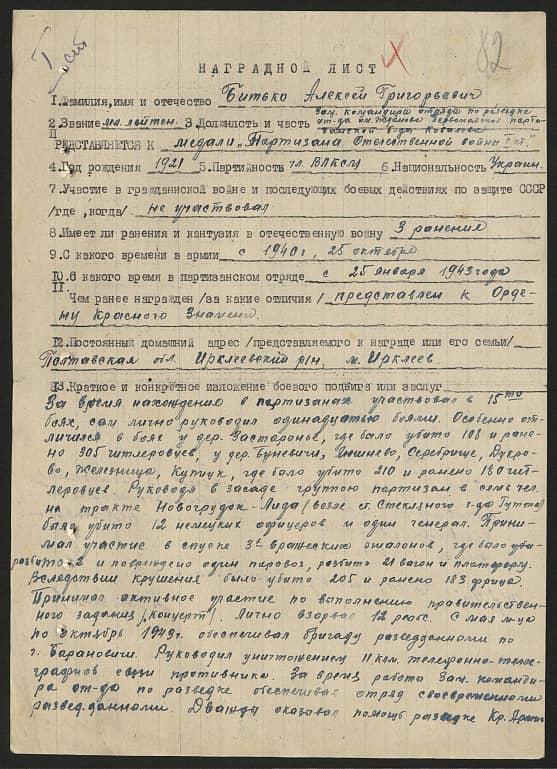 I ст
82
НАГРАДНОЙ ЛИСТ
1.Фамилия,имя и отечество Битько Алексей Григорьевич
2.Звание мл.лейтен. 3.Должность и часть Зам. командира отряда по разведке
от-да им. Жданова Первомайской парти-
занской бр-ды
РЕДСТАВЛЯЕТСЯ К медали "Партизана Отечественной войны" I ст.
4.Год рождения 1921 5.Партийность чл. ВЛКСМ 6.Национальность Украин.
7.Участие в гражданской войне и последующих боевых действиях по защите СССР
/где ,когда/ не участвовал
8.Имеет ли ранения и кантузия в отечественную войну 3 ранения
9.С какого времени в армии с 1940г, 25 октября
10.С какого время в партизанском отряде с 25 января 1943 года
11.
Чем ранее награжден /за какие отличия/ представлен к Орде-
ну Красного Знамени.
12.Постоянный домашний адрес /представляемого к награде или его семьи/
Полтавская обл. Ирклеевский р/н, м. Ирклеев.
13.Краткое и конкретное изложение боевого подвига или заслуг
За время нахождения в партизанах участвовал в 15ти
боях, сам лично руководил одинадцатью боями. Особенно от-
личился в боях у дер. Застаронье, где было убито 108 и ране-
но 305 гитлеровцев, у дер. Буневичи, Серебрище, Дукро-
во, Железница, Куписк, где было убито 210 и ранено 180 гит-
леровцев. Руководя в засаде группою партизан в семь чел.
на тракте Новогрудок-Лида (возле ст. Стеклзного з-да Гутта)
было убито 12 немецких офицеров и один генерал. Прини-
мал участие в спуске 3х вражеских эшалонов, где было
разбито 2 и повреждено один паровоз, разбито 21 вагон и платформу.
Вследствии крушения было убито 205 и ранено 183 фрица.
Принимал активное участие по выполнению правительствен-
ного задания ("концерт"). Лично взорвал 12 рельс. С мая м-ца
по октябрь 1943г. обеспечивал бригаду разведданными по
г. Барановичи. Руководил уничтожением 11 клм. телефонно-теле-
графной связи противника. За время работы Зам. команди-
ра от-да по разведке обеспечивал отряд своевременными
развед.данными. Дважды оказавал помощь разведке Кр. Армии